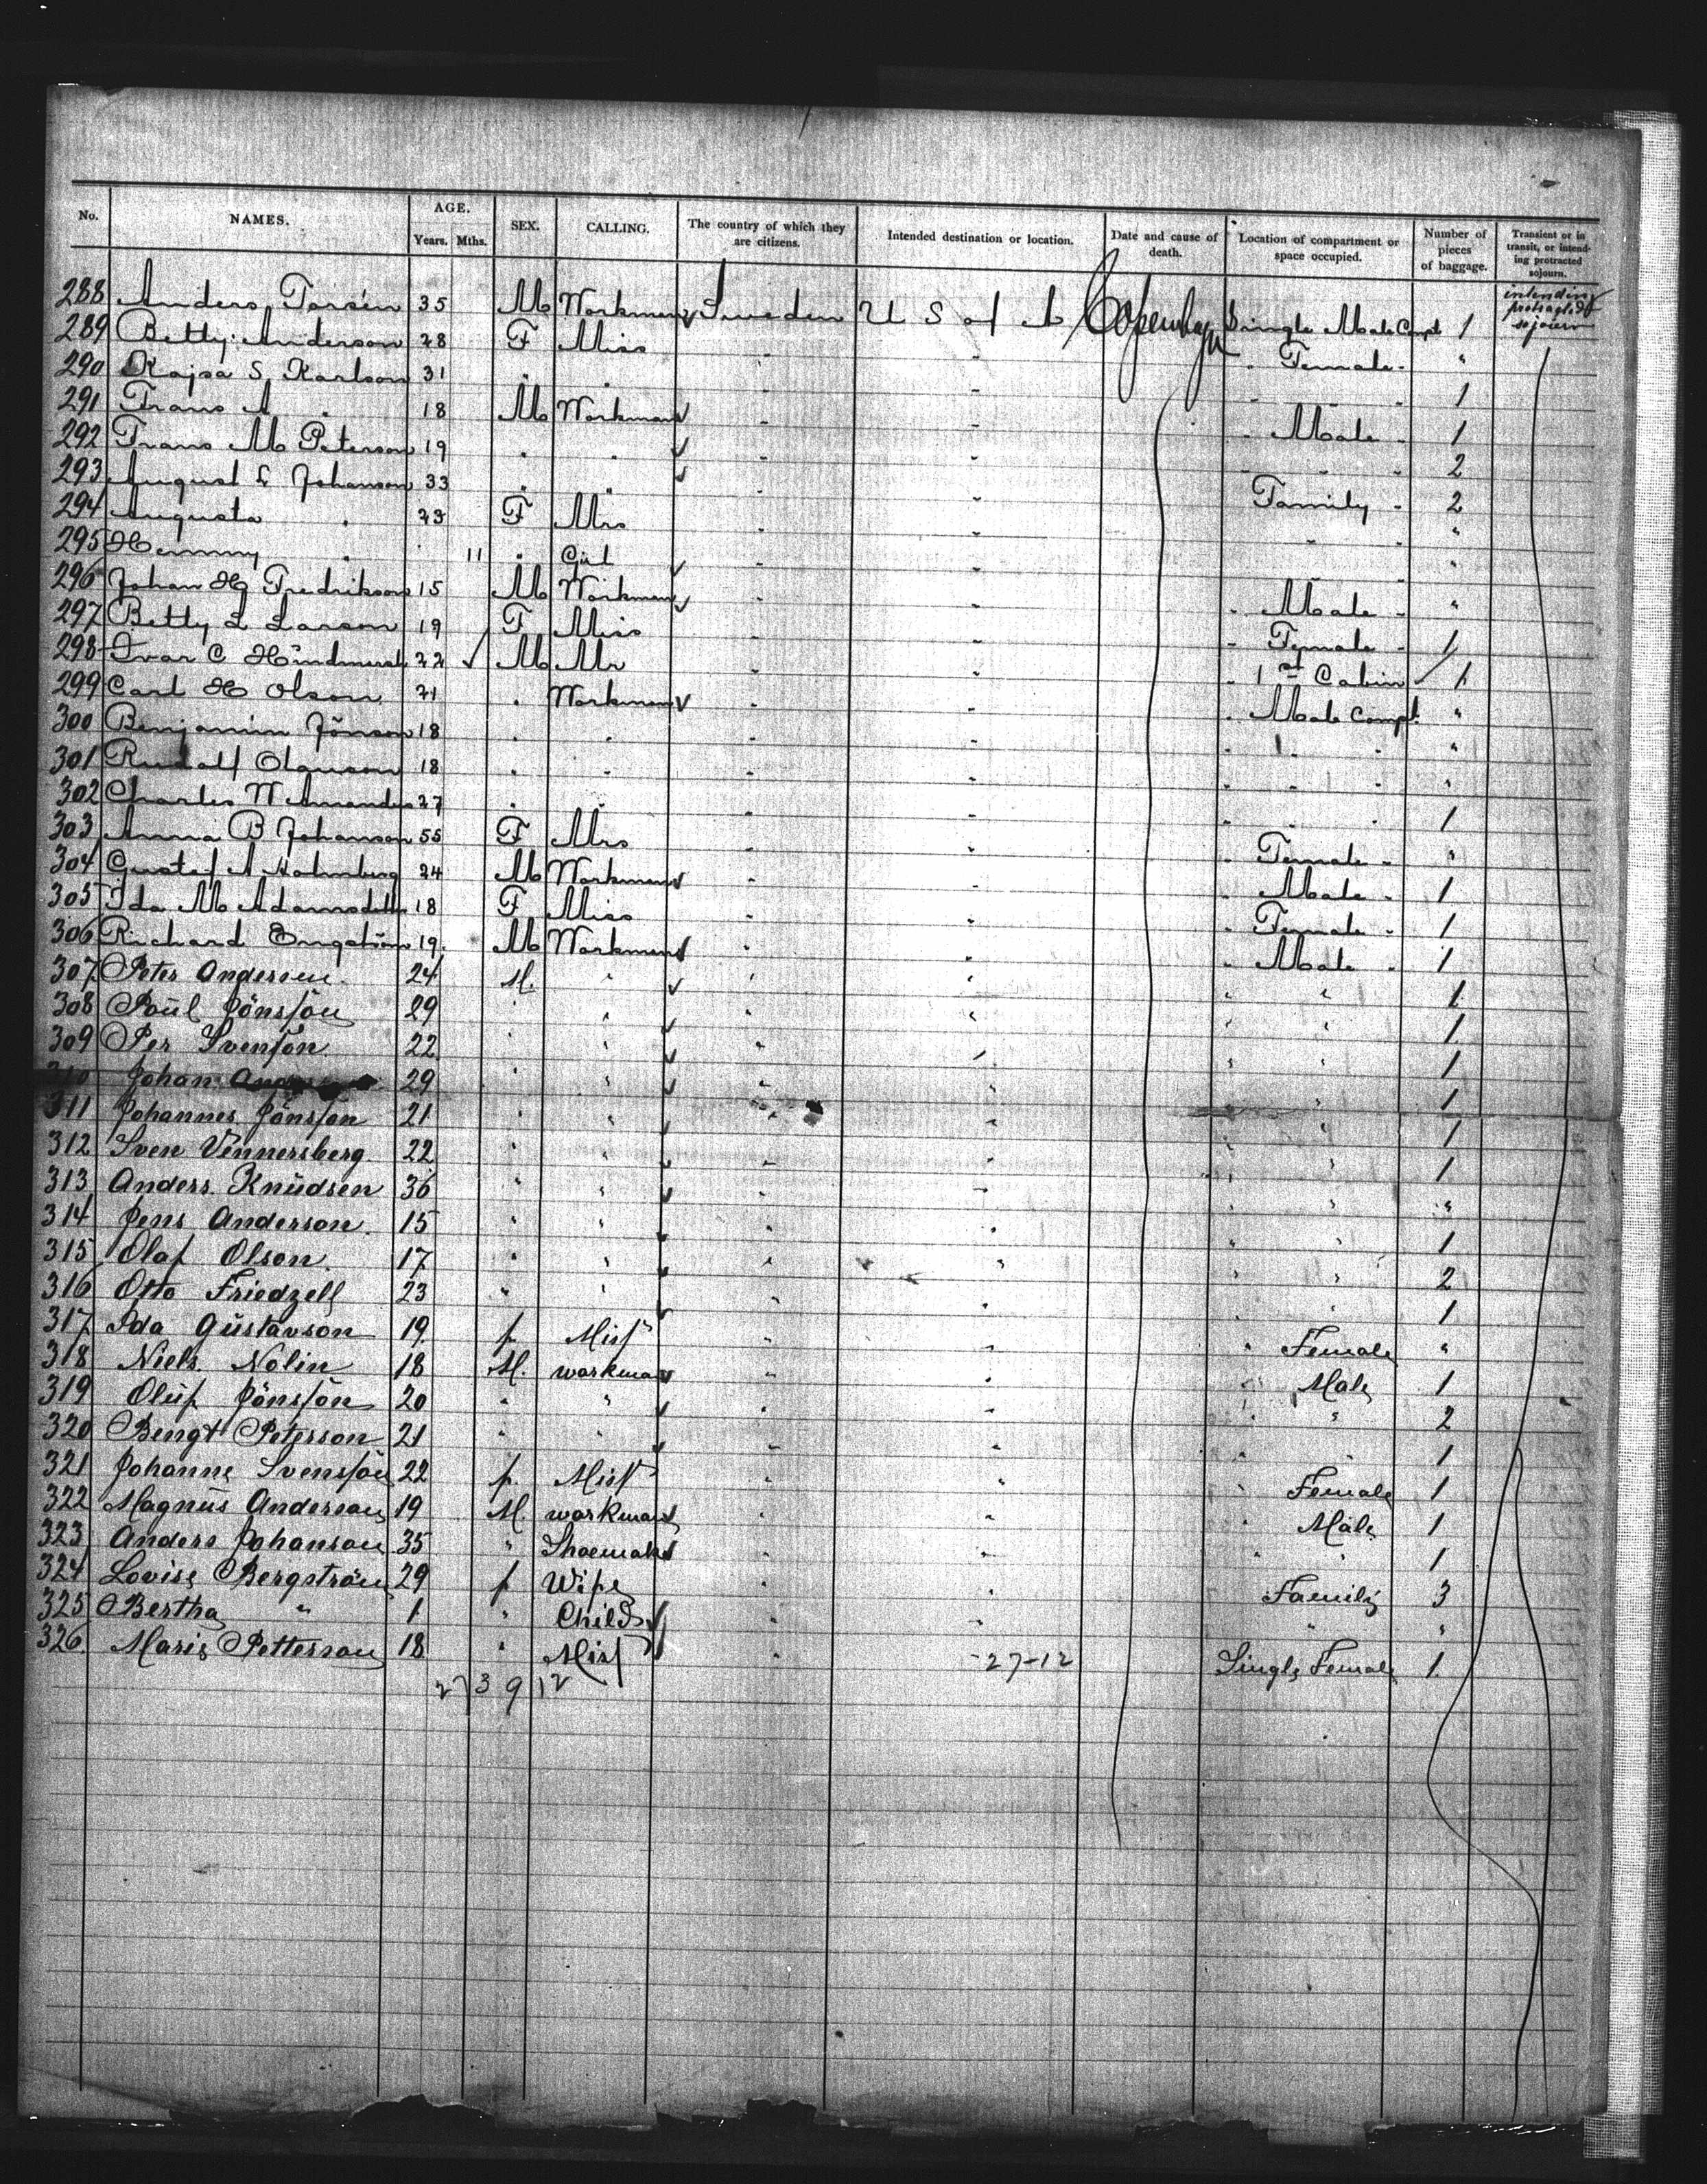 No. NAMES. AGE. Years. Mths. SEX. CALLING. The country of which they are citizens. Intended destination or location. Date and cause of death. Location of compartment or space occupied. Number of pieces of baggage. Transient or in transit, or intending protracted sojourn.
288 Anders Torsén 35 M Workman Sweden U S of A Copenhagen Single Male Compt 1 intending protracted sojourn
289 Betty Anderson 28 F Miss " " " Female " "
290 Kajsa S Karlson 31 " " " " " " " 1
291 Frans A " 18 M Workman " " " Male " 1
292 Frans M Peterson 19 " " " " " " " 2
293 August L Johanson 33 " " " " Family " 2
294 Augusta " 23 F Mrs " " " " "
295 Hemmy " 11 " Girl " " " " "
296 Johan Hj Fredrikson 15 M Workman " " " Male " "
297 Betty L Larson 19 F Miss " " " Female " 1
298 Ivar C 22 M Mr " " " 1st Cabin 1
299 Carl H Olson 21 " Workman " " " Male Compt. "
300 Benjamin Jönson 18 " " " " " " " "
301 Rudolf Olauson 18 " " " " " " " "
302 Charles W Amandus 27 " " " " " " " 1
303 Anna B Johanson 55 F Mrs " " " Female " "
304 Gustaf A Holmberg 24 M Workman " " " Male " 1
305 Ida M 18 F Miss " " " Female " 1
306 Richard Engström 19 M Workman " " " Male " 1
307 Peter Andersen 24 M. " " " " " 1
308 Paul Jönsson 29 " " " " " 1
309 Per Svenson 22 " " " " " " 1
310 Johan 29 " " " " " 1
311 Johannes Jönsson 21 " " " " " 1
312 Sven Vennersberg 22 " " " " " " 1
313 Anders Knudsen 36 " " " " " " "
314 Jens Anderson 15 " " " " " " 1
315 Olaf Olson. 17 " " " " " " 2
316 Otto Friedzell 23 " " " " 1
317 Ida Gustavson 19 f Miss " " " Female "
318 Niels Nolin 18 M. workman " " " Male 1
319 Oluf Jönsson 20 " " " " " " 2
320 Bengt Peterson 21 " " " " " " 1
321 Johanne Svensson 22 f Miss " " " Female 1
322 Magnus Anderson 19 M. workman " " Male 1
323 Anders Johanson 35 " Shoemaker " " " " 1
324 Lovise Bergström 29 f Wife " " Family 3
325 Bertha " 1 " Child " " " "
326 Marie Petterson 18 " Miss " 27-12 Single Female 1
27 3 9 12